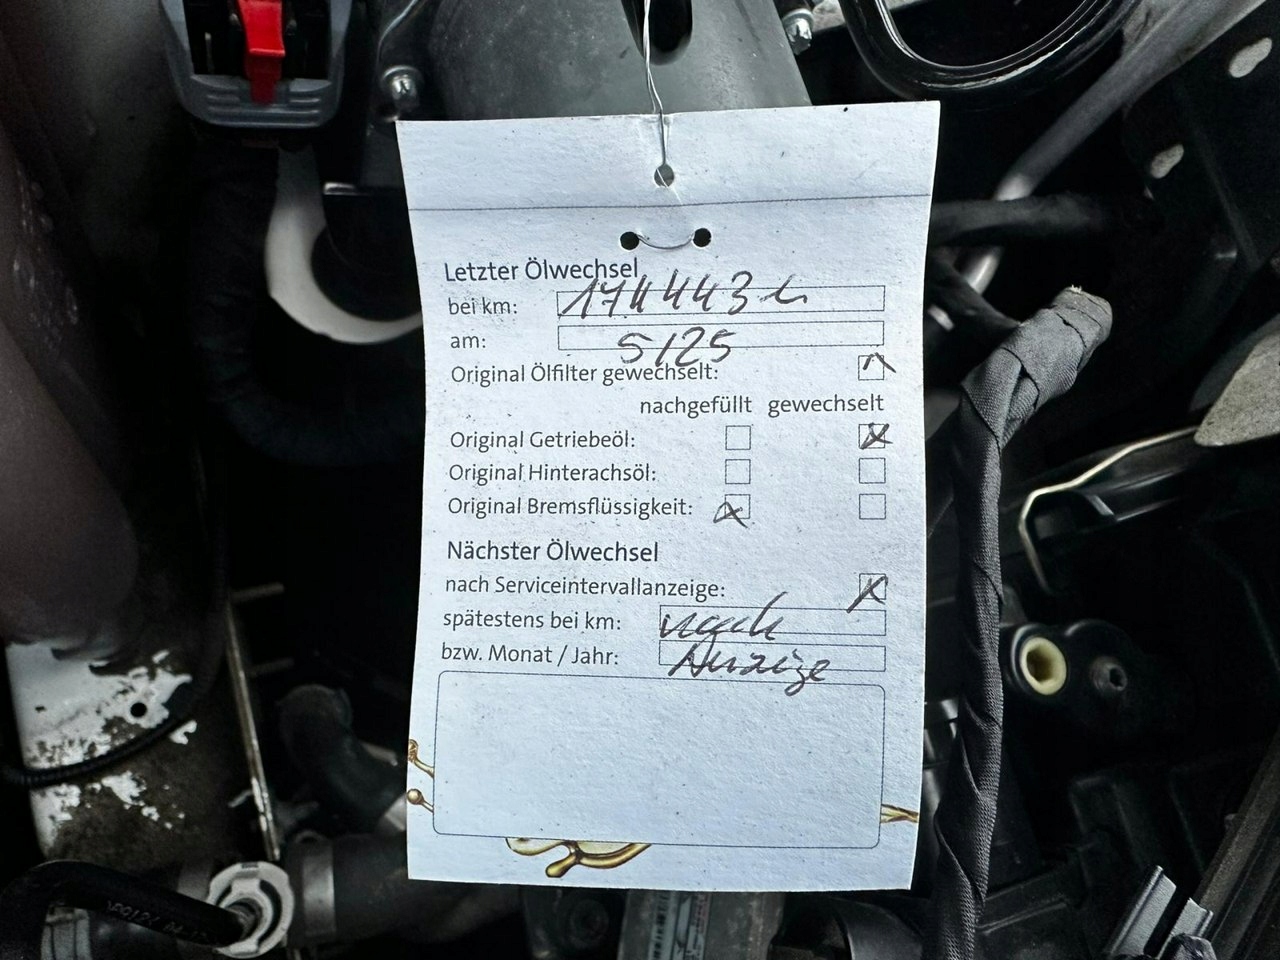 Letzter Ölwechsel
bei km: 174443
am: 5/25
Original Ölfilter gewechselt:
nachgefüllt gewechselt
Original Getriebeöl:
Original Hinterachsöl:
Original Bremsflüssigkeit:
Nächster Ölwechsel
nach Serviceintervallanzeige:
spätestens bei km: nach
bzw. Monat / Jahr: Anzeige